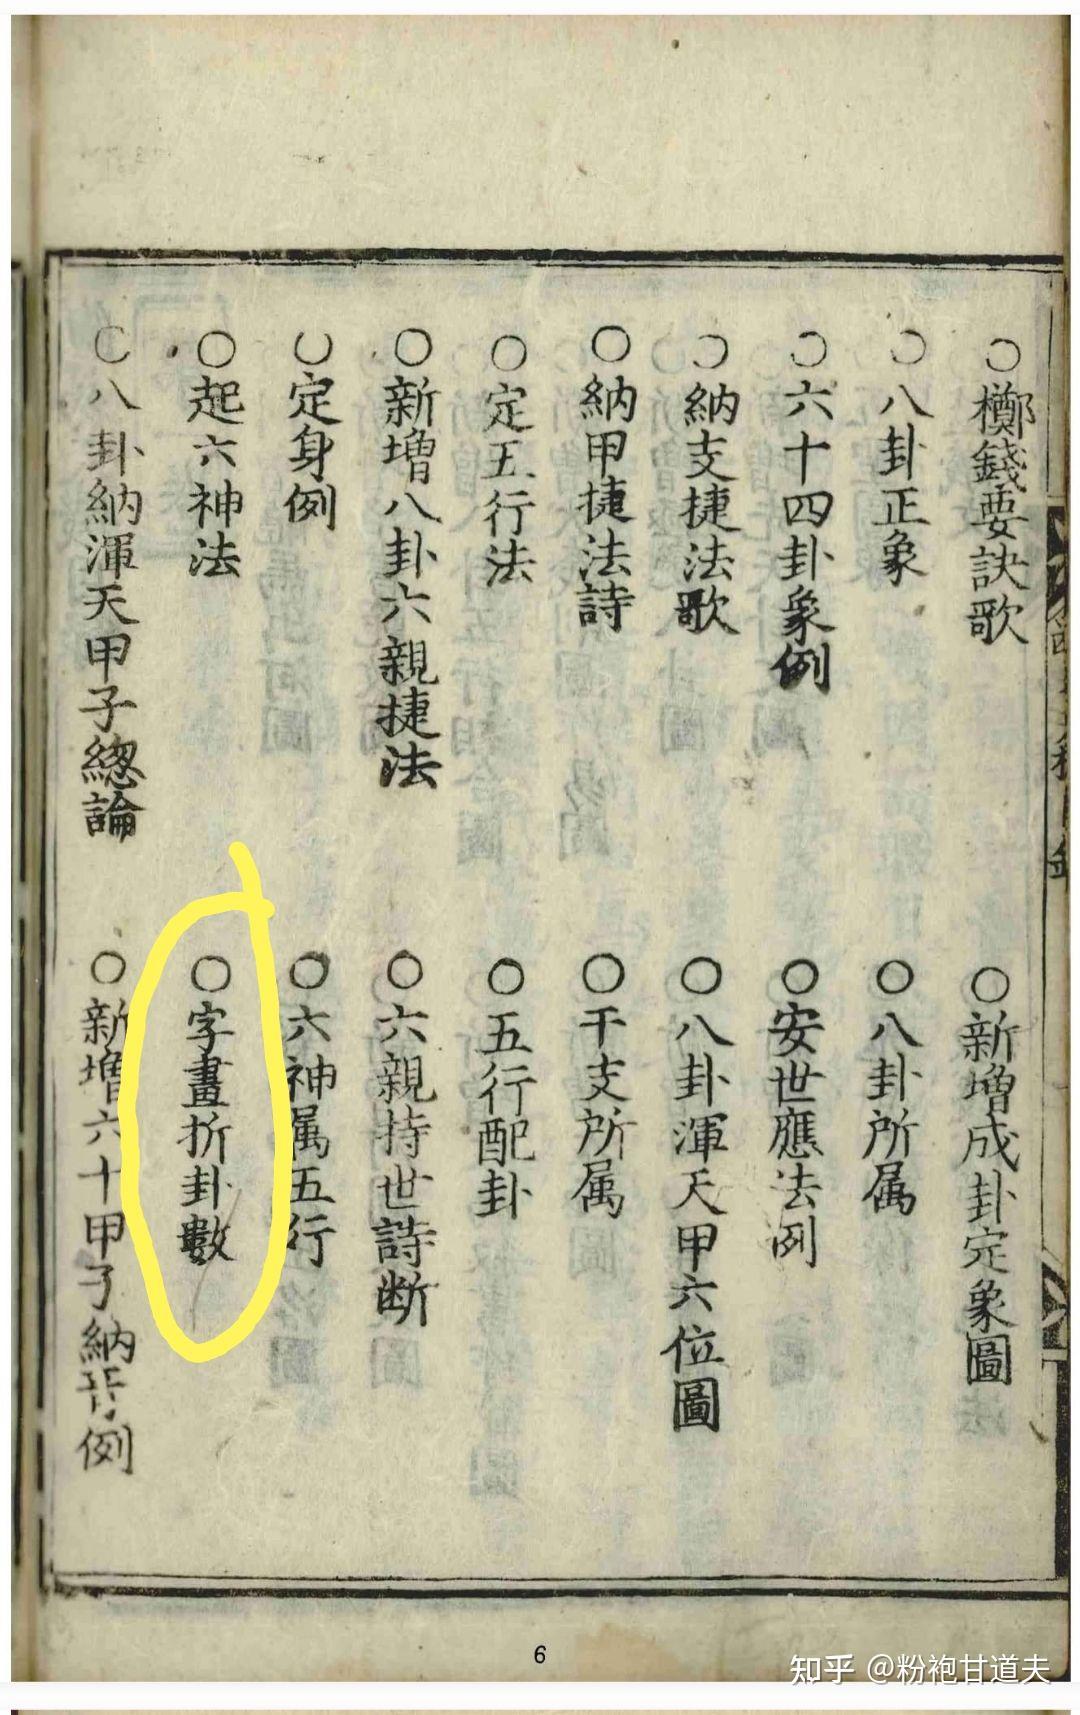 ○擲錢要訣歌
○新增成卦定象圖
○八卦正象
○八卦所属
○六十四卦象例
○安世應法例
○納支捷法歌
○八卦渾天甲六位圖
○納甲捷法詩
○干支所属
○定五行法
○五行配卦
○新增八卦六親捷法
○六親持世詩断
○定身例
○六神属五行
○起六神法
○字畫折卦數
○八卦納渾天甲子總論
○新增六十甲子納音例
6
知乎 @粉袍甘道夫